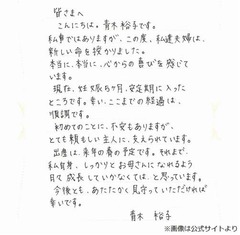 皆さまへ
こんにちは。青木裕子です。
私事ではありますが、この度、私達夫婦は、
新しい命を授かりました。
本当に、本当に、心からの喜びを感じて
います。
現在、妊娠5ヶ月、安定期に入った
ところです。幸い、ここまでの経過は、
順調です。
初めてのことに、不安もありますが、
とても頼もしい主人に、支えられています。
出産は、来年の春の予定です。それまで、
私自身、しっかりとお母さんになれるよう
日々成長していかなくては、と思っています。
今後とも、あたたかく見守っていただければ
幸いです。
青木 裕子
※画像は公式サイトより